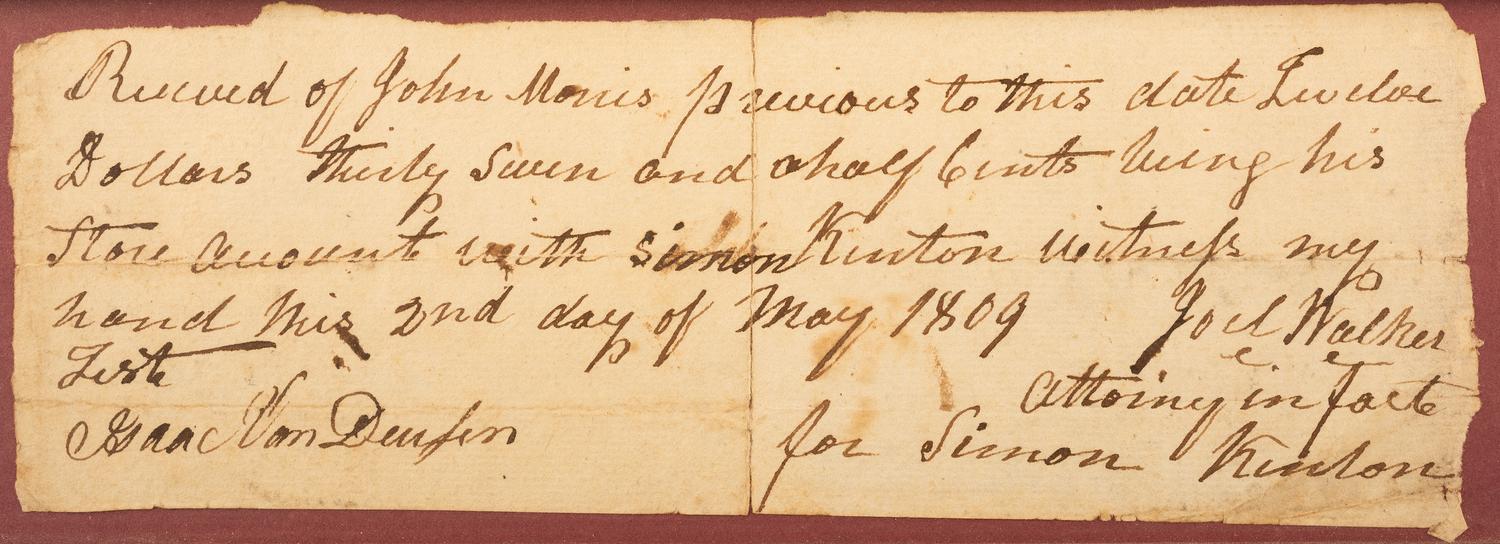 Received of John Morris previous to this date Twelve
Dollars thirty Seven and ahalf Cents being his
Store account with Simon Kenton witness my
hand this 2nd day of May 1809 Joel Walker
Test
attorny in fact
Isaac Van Deusen
for Simon Kenton